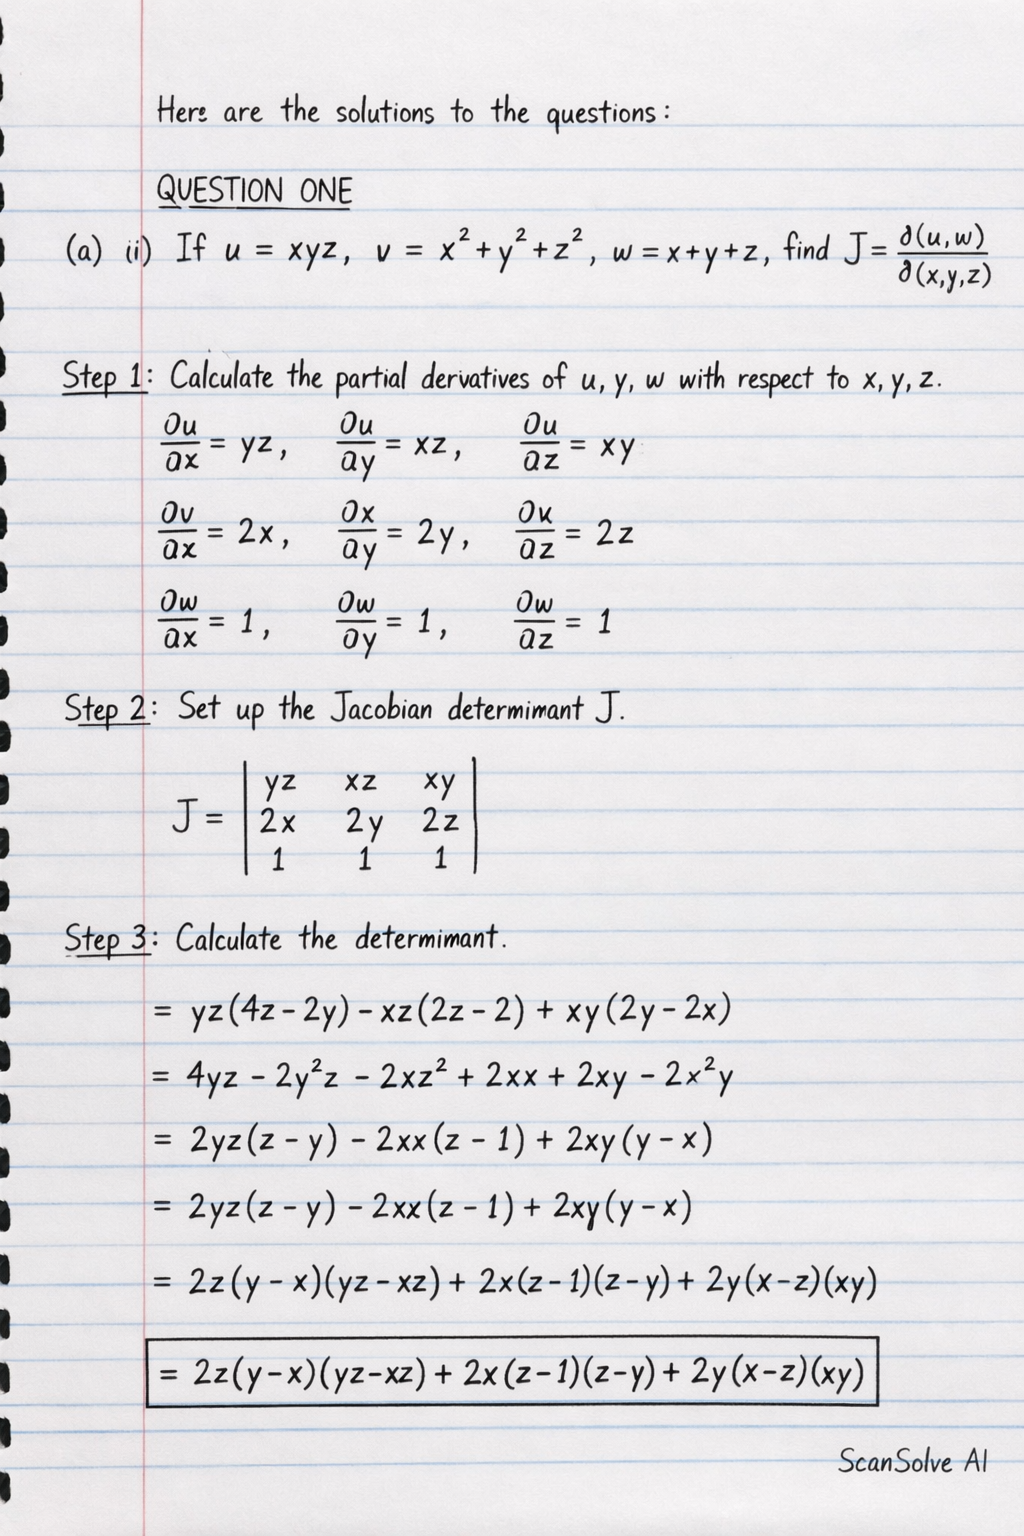 Here are the solutions to the questions:
QUESTION ONE
(a) ii) If u = xyz, v = x² + y² + z², w = x + y + z, find J = ∂(u,w)/∂(x,y,z)
Step 1: Calculate the partial dervatives of u, y, w with respect to x, y, z.
∂u/∂x = yz, ∂u/∂y = xz, ∂u/∂z = xy
∂v/∂x = 2x, ∂x/∂y = 2y, ∂k/∂z = 2z
∂w/∂x = 1, ∂w/∂y = 1, ∂w/∂z = 1
Step 2: Set up the Jacobian determimant J.
J = | yz xz xy |
| 2x 2y 2z |
| 1 1 1 |
Step 3: Calculate the determimant.
= yz(4z - 2y) - xz(2z - 2) + xy(2y - 2x)
= 4yz - 2y²z - 2xz² + 2xx + 2xy - 2x²y
= 2yz(z - y) - 2xx(z - 1) + 2xy(y - x)
= 2yz(z - y) - 2xx(z - 1) + 2xy(y - x)
= 2z(y - x)(yz - xz) + 2x(z - 1)(z - y) + 2y(x - z)(xy)
= 2z(y - x)(yz - xz) + 2x(z - 1)(z - y) + 2y(x - z)(xy)
ScanSolve AI